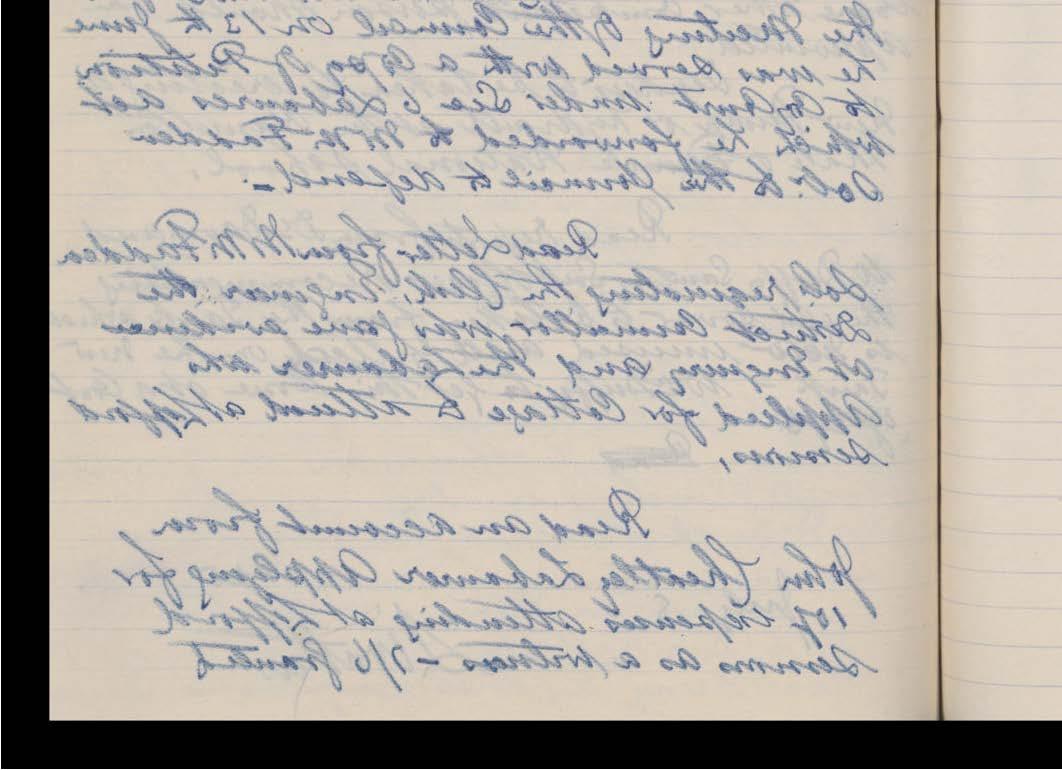 the Meeting of the Council on 13th June
he was served with a Copy of Petition
to Co Court under Sec 6 Labourers Act
which he forwarded to Mr McFadden
Solr. to the Council to defend.-
Read Letter from Mr McFadden
Solr requesting the Clerk, Engineer the
District Councillor who gave evidence
at Inquiry and the Labourer who
applied for Cottage to attend at Lifford
Sessions,
Read an account from
John Labourer Applying for
10/- expenses attending at Lifford
Sessions as a witness - 7/6 granted